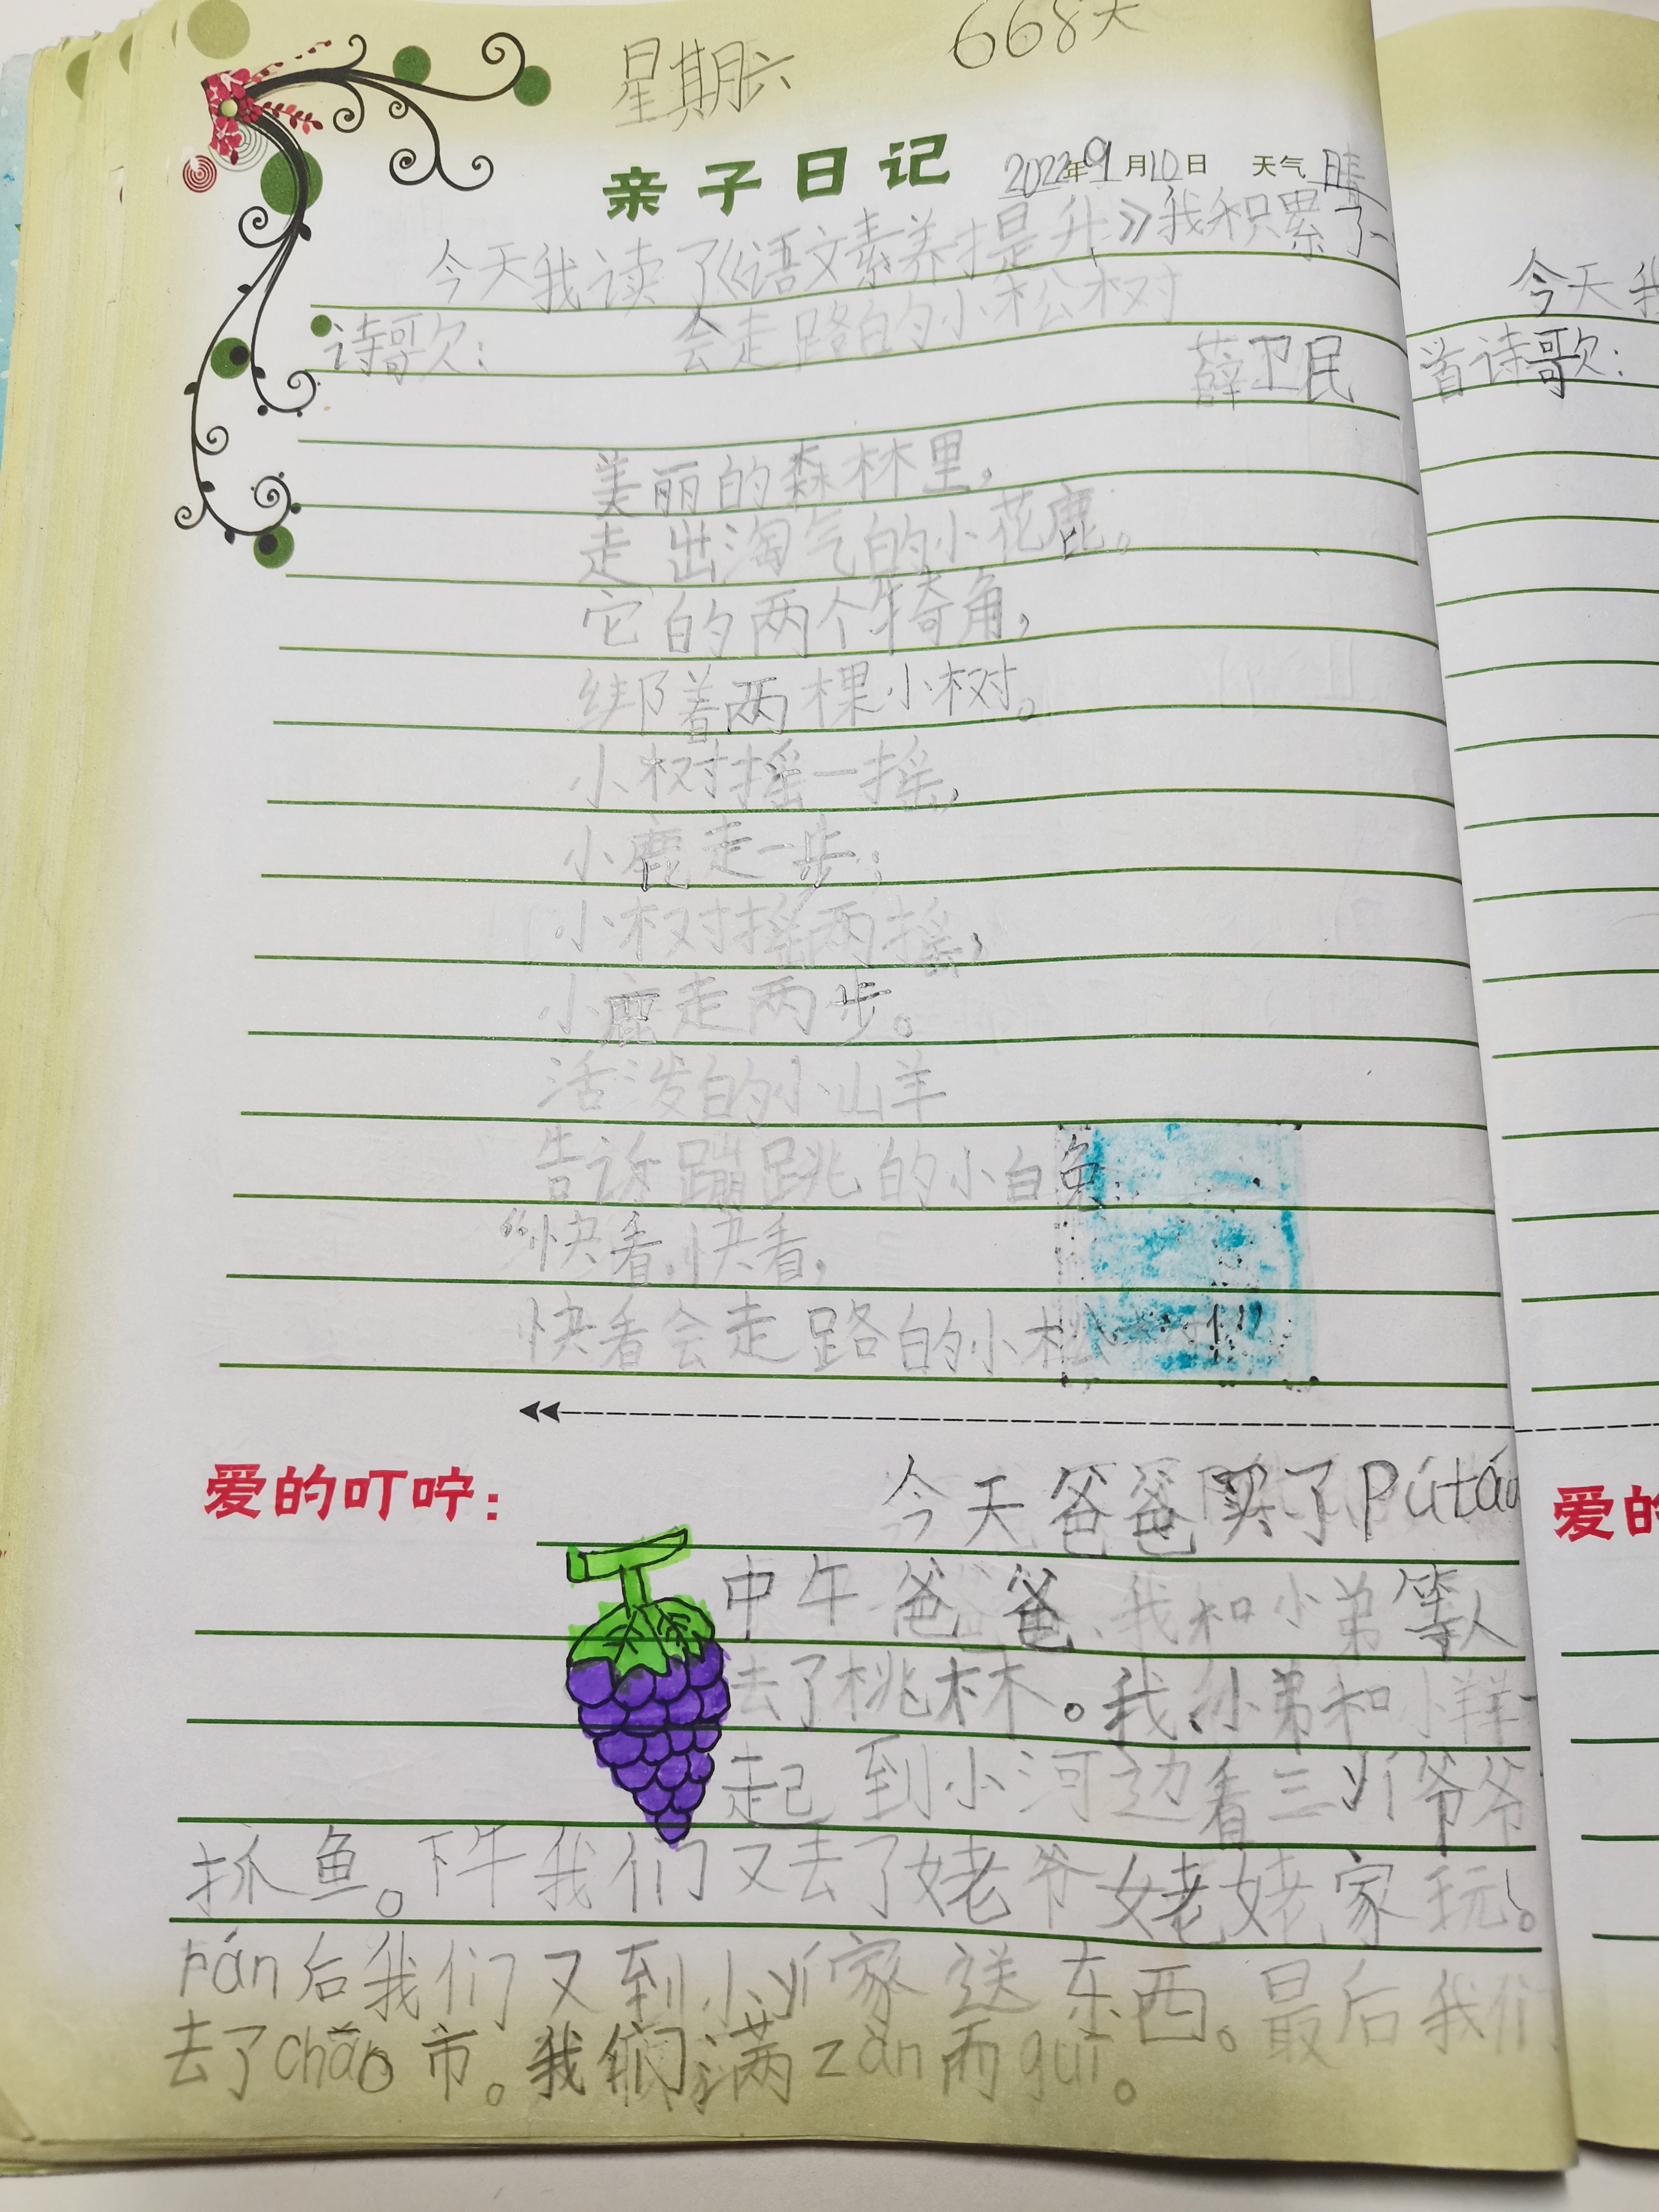 星期六 668天
亲子日记 2022年9月10日 天气 晴
今天我读了《语文素养提升》我积累了一
诗歌: 会走路的小松树
薛卫民
美丽的森林里,
走出淘气的小花鹿。
它的两个犄角,
绑着两棵小树。
小树摇一摇,
小鹿走一步;
小树摇两摇,
小鹿走两步。
活泼的小山羊
告诉蹦跳的小白兔:
“快看,快看,
快看会走路的小松 !”
爱的叮咛:
今天爸爸买了Pútáo
中午爸爸、我和小弟等人
去了桃林。我、小弟和小样一
起到小河边看三爷爷
抓鱼。下午我们又去了姥爷姥姥家玩。
rán后我们又到小 家送东西。最后我们
去了chāo市。我们满zàn而guī。
今天我
首诗歌:
爱的